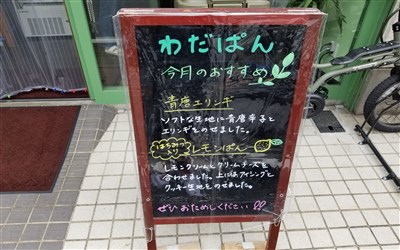 わだぱん
今月のおすすめ
青唐エリンギ
ソフトな生地に青唐辛子と
エリンギをのせました。
はちみつ
入り
レモンぱん
レモンクリームとクリームチーズを
合わせました。上にはアイシングと
クッキー生地をのせました。
ぜひおためしください